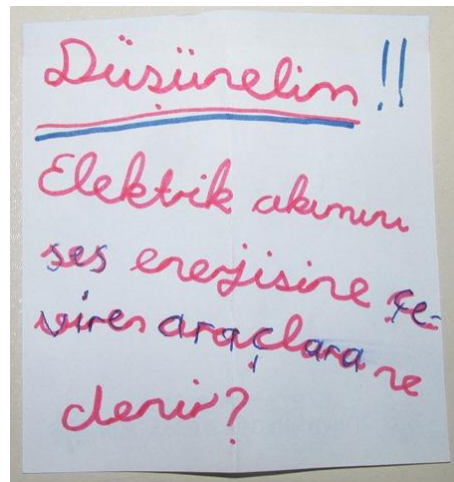 Düşünelim!!
Elektrik akımını
ses enerjisine çe-
viren araçlara ne
denir?